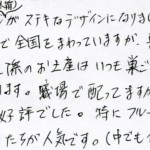 がステキなデザインになりまし
で全国をまわっていますが、
係のお土産はいつも巣ご
ます。職場で配ってますが
好評でした。特にフルー
たちが人気です。(中でも